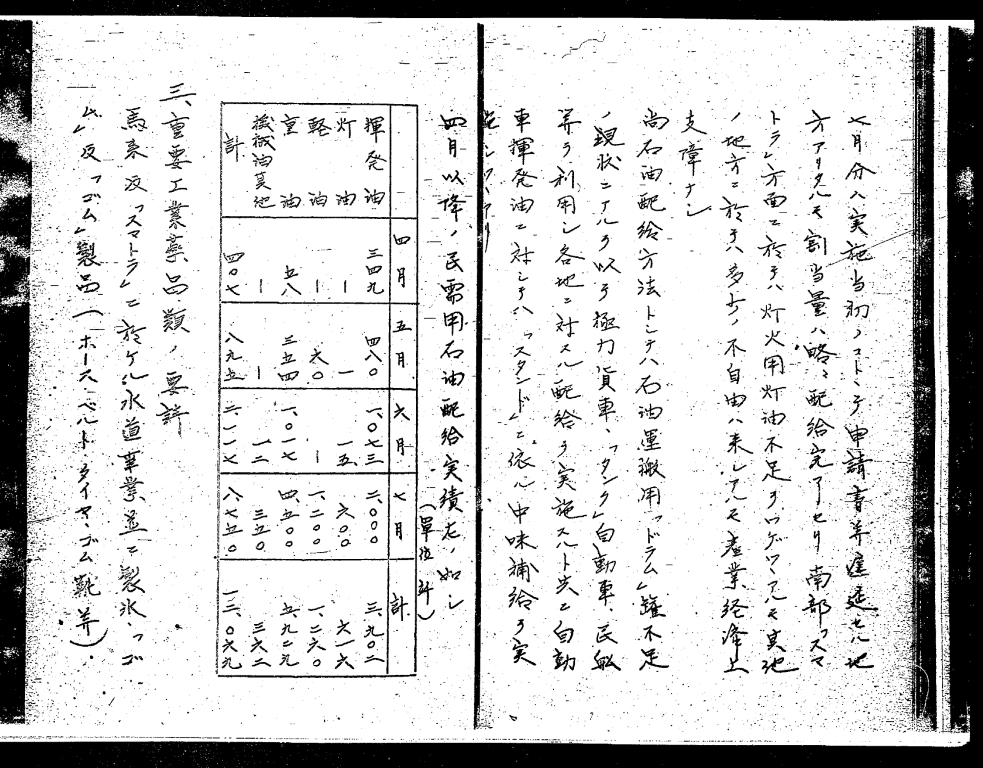 七月分ハ実施当初ノコトトテ申請書等遅延セル地
方アリタルモ割当量ハ略々配給完了セリ南部「スマ
トラ」方面ニ於テハ灯火用灯油不足ヲツゲツツアルモ其他
ノ地方ニ於テハ多少ノ不自由ハ来シアルモ産業経済上
支障ナシ
尚石油配給方法トシテハ石油運搬用「ドラム」罐不足
ノ現状ニアルヲ以テ極力貨車、「タンク」自動車、民船
等ヲ利用シ各地ニ対スル配給ヲ実施スルト共ニ自動
車揮発油ニ対シテハ「スタンド」ニ依ル中味補給ヲ実
施シツツアリ
四月以降ノ民需用石油配給実績左ノ如シ
(單位 竏)
四月 五月 六月 七月 計
揮発油 三四九 四八〇 一、〇七三 二、〇〇〇 三、九〇二
灯油 一 一 一五 六〇〇 六一六
軽油 ー 六〇 ー 一、二〇〇 一、二六〇
重油 五八 三五四 一、〇一七 四、五〇〇 五、九二九
機械油其他 ー ー 一二 三五〇 三六二
計 四〇七 八九五 二、一一七 八、七五〇 一三、〇六九
三、重要工業薬品類ノ要許
馬来及「スマトラ」ニ於ケル水道事業並ニ製氷、「ゴ
ム」及「ゴム」製品(ホース、ベルト、タイヤ、ゴム靴等)、